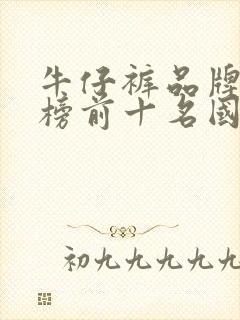 牛仔裤品牌
榜前十名國
初九九九九九